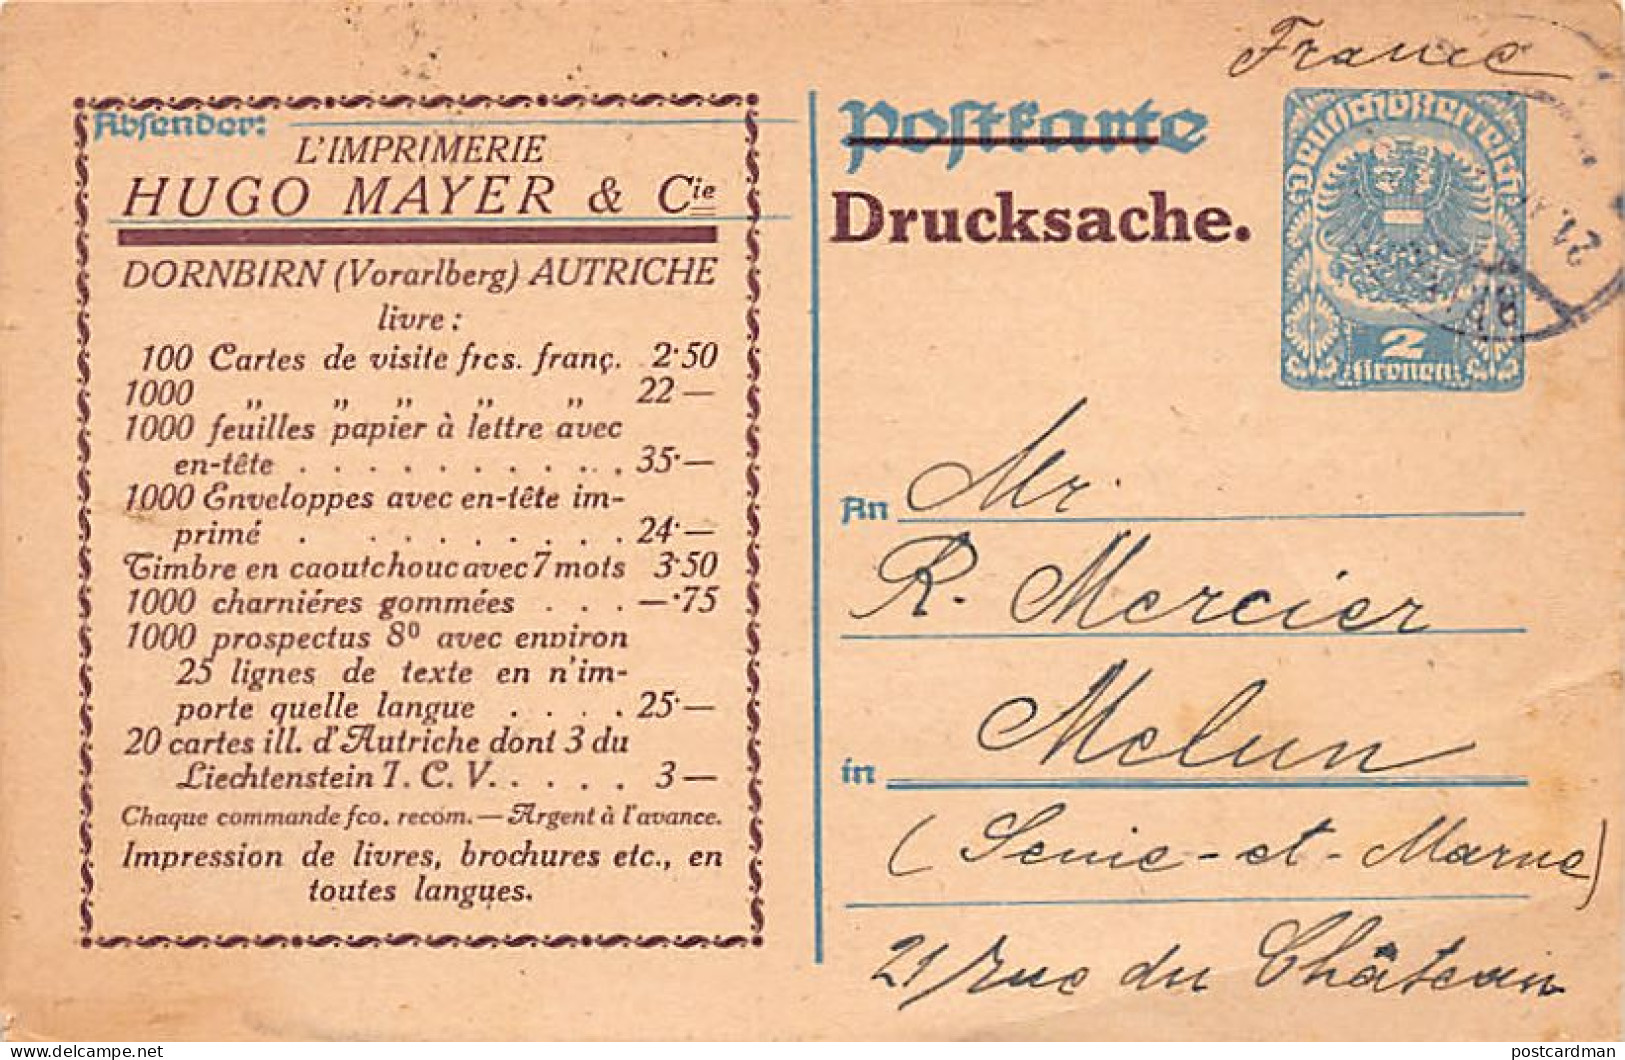 France
Absender:
L'IMPRIMERIE
HUGO MAYER & Cie
DORNBIRN (Vorarlberg) AUTRICHE
livre :
100 Cartes de visite frcs. franç. 2·50
1000 „ „ „ „ „ 22 —
1000 feuilles papier à lettre avec
en-tête . . . . . . . . . . . 35·—
1000 Enveloppes avec en-tête im-
primé . . . . . . . . . 24·—
Timbre en caoutchouc avec 7 mots 3·50
1000 charniéres gommées . . . —·75
1000 prospectus 8⁰ avec environ
25 lignes de texte en n'im-
porte quelle langue . . . . 25·—
20 cartes ill. d'Autriche dont 3 du
Liechtenstein T. C. V. . . . . 3 —
Chaque commande fco. recom. — Argent à l'avance.
Impression de livres, brochures etc., en
toutes langues.
Postkarte
Drucksache.
Deutschösterreich
2
Kronen
21.
An Mr.
R. Mercier
in Melun
(Seine-et-Marne)
21 rue du Château
delcampe.net
postcardman